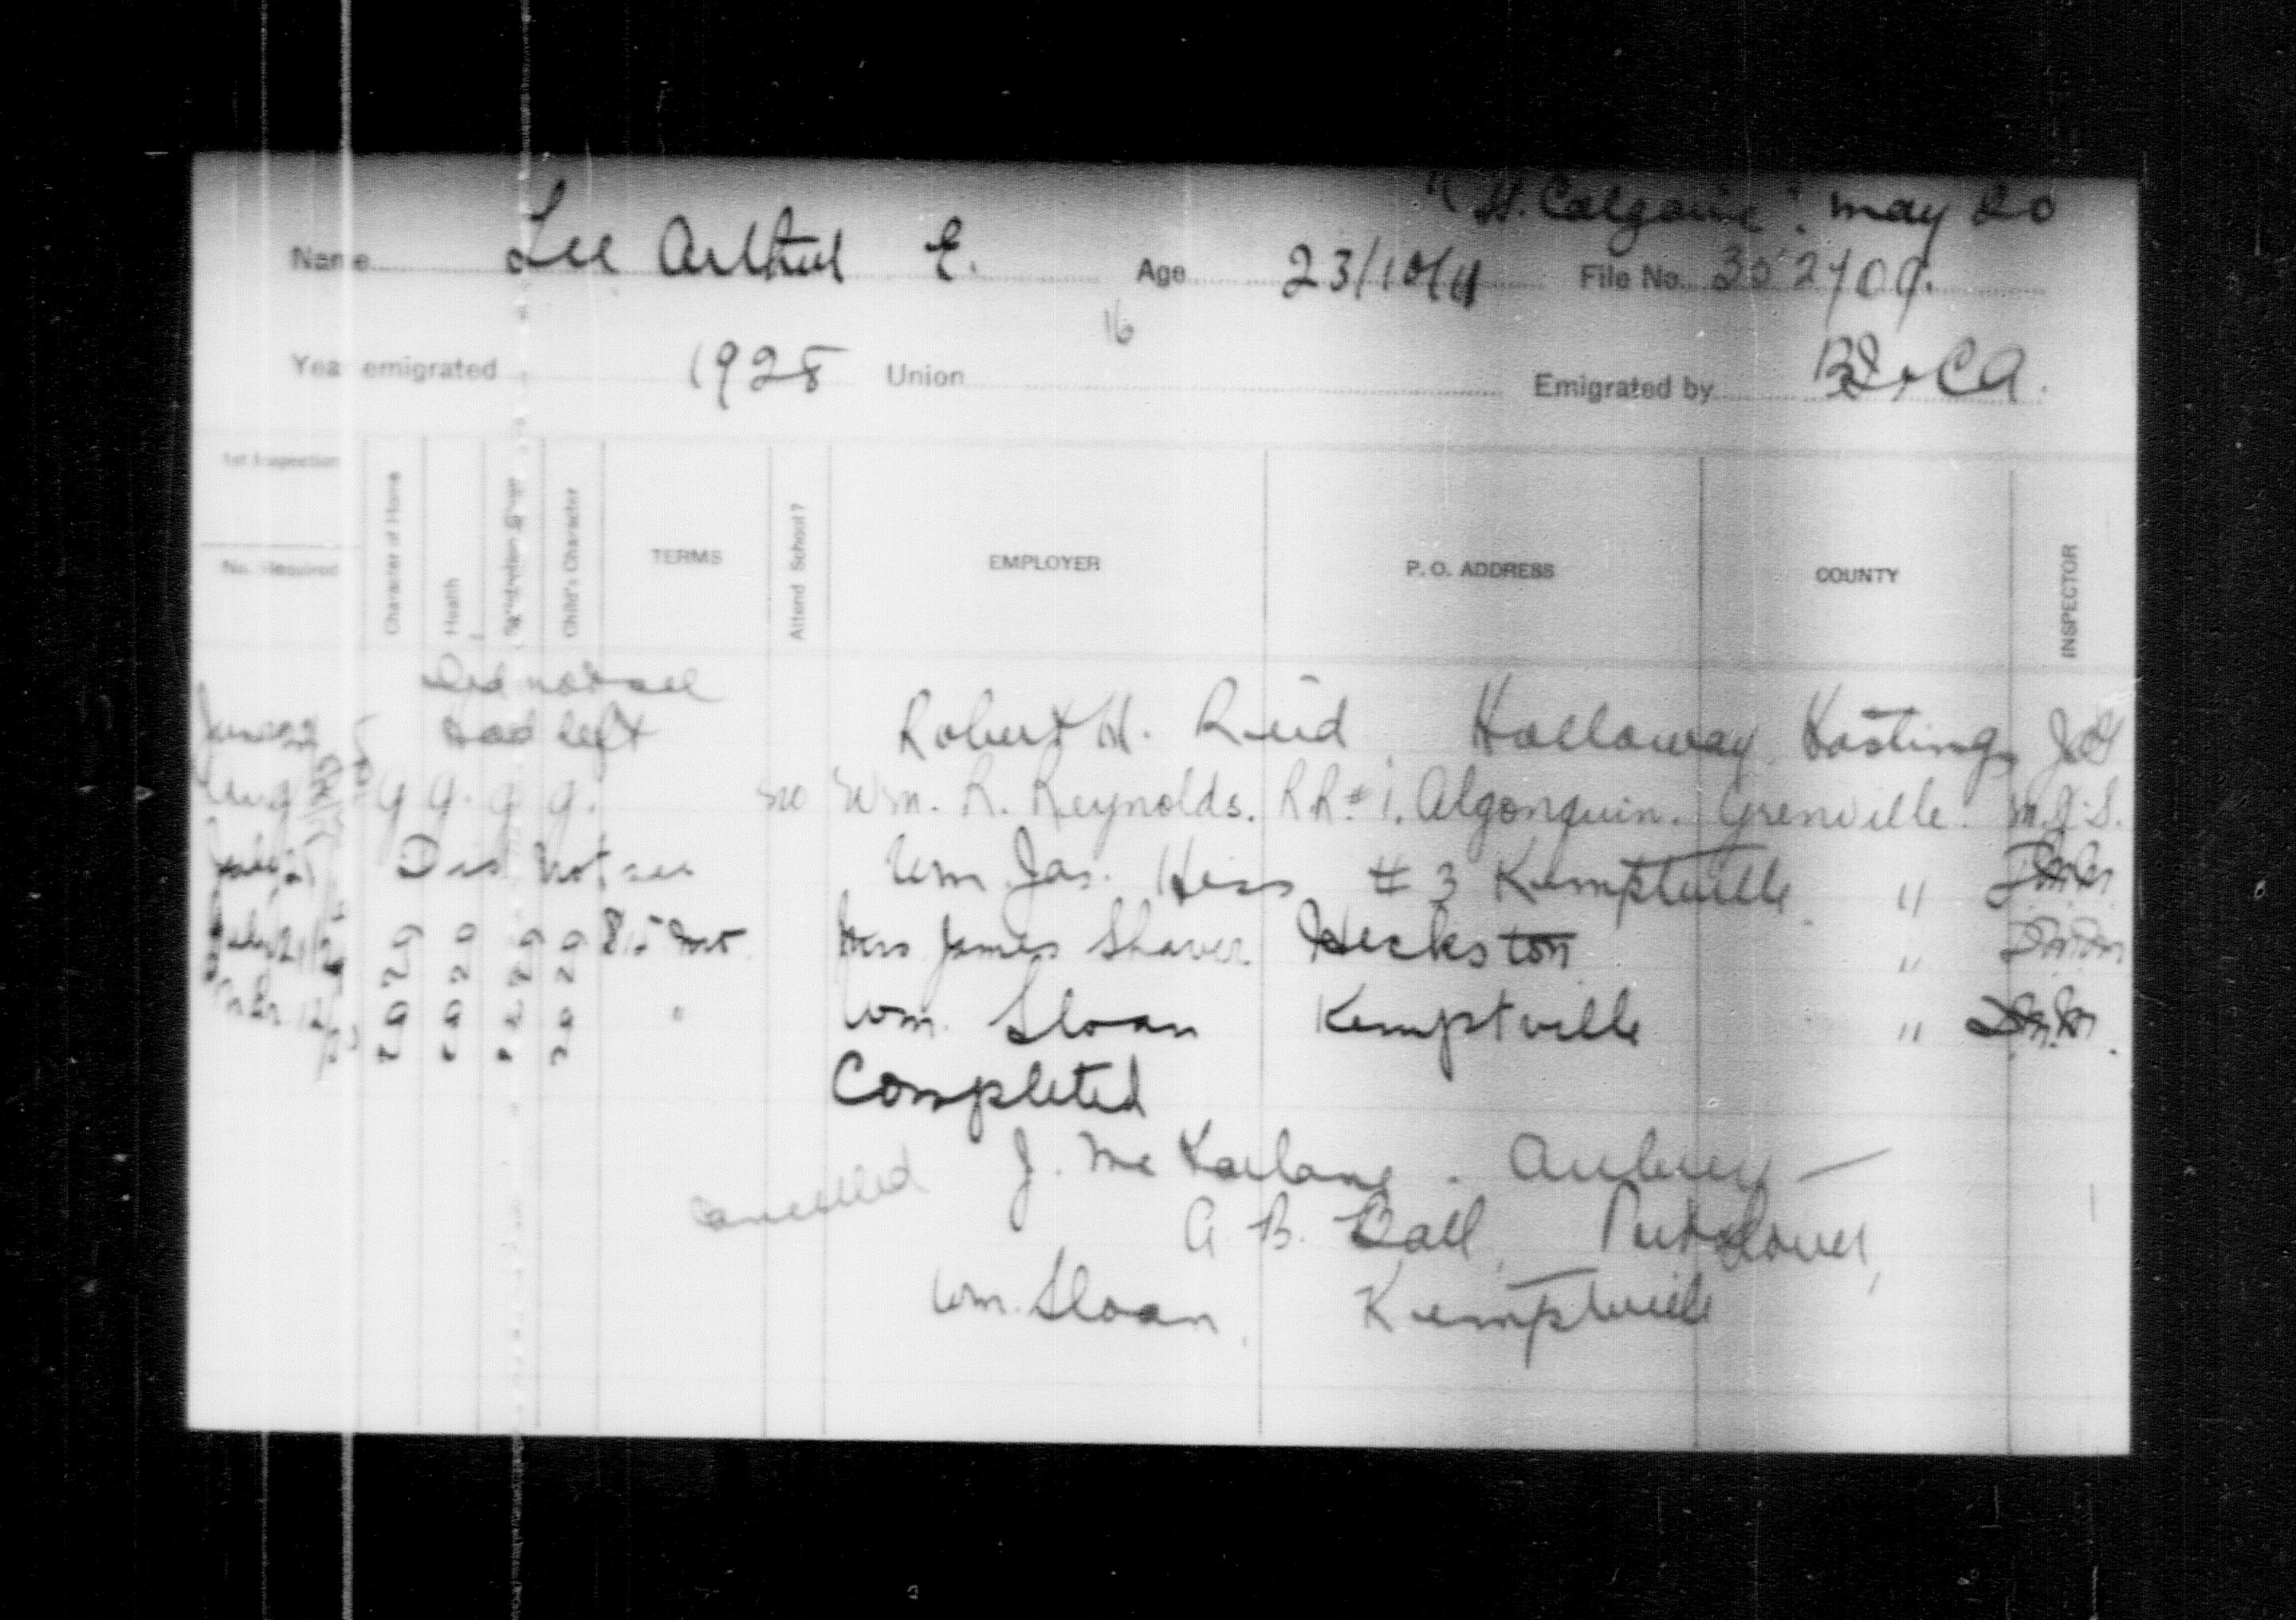 "H. Calgaric". May 20
Name Lee Arthur E. Age 23/10/11 File No.
16
Year emigrated 1928 Union Emigrated by
1st Inspection
No. Required
Character of Home
Health
Child's Character
TERMS
Attend School?
EMPLOYER
P. O. ADDRESS
COUNTY
INSPECTOR
Did not see
June 22 Had left Robert H. Reid Holloway Hastings
Aug g g. g g. no Wm. R. Reynolds. R.R. #1. Algonquin. Grenville. M.J.S.
Did not see Wm. Jas. Hess #3 Kemptville "
g g g g $15 mo Mrs James Shaver Heckston "
" Wm. Sloan Kemptville "
Completed
cancelled J. McFarlane. Aubrey —
A. B. Ball,
Wm. Sloan, Kemptville